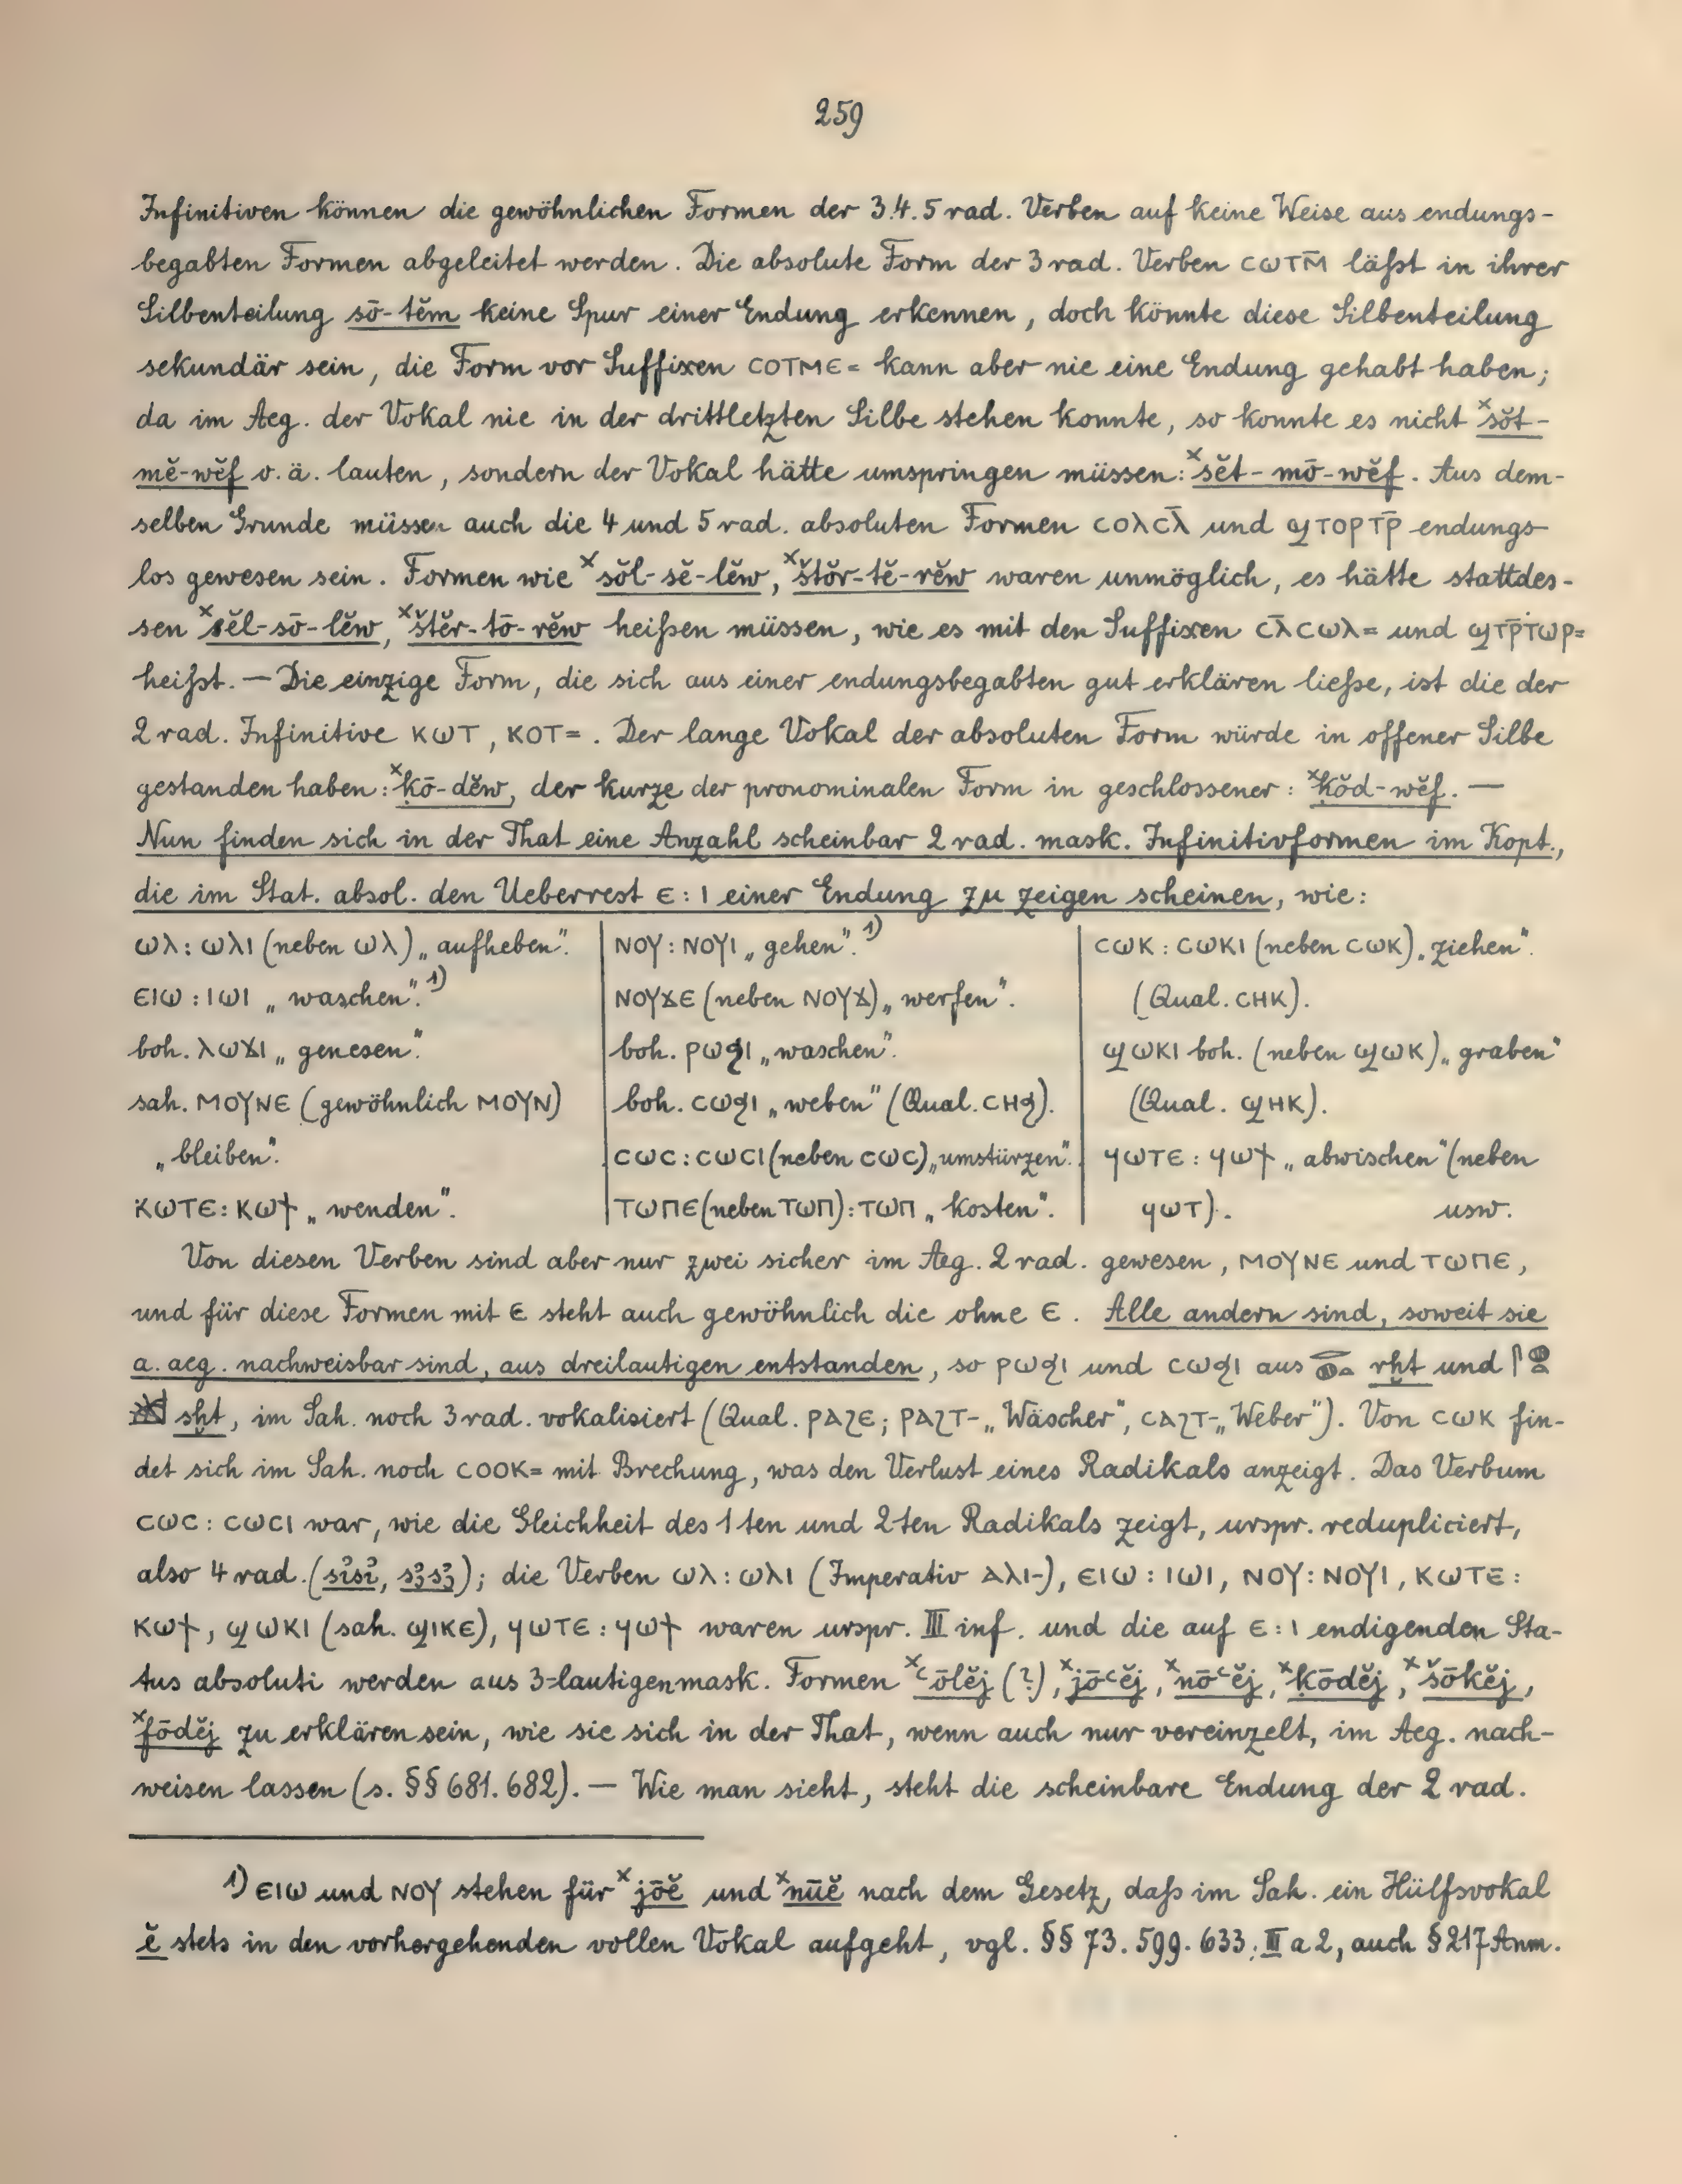 259
Infinitiven können die gewöhnlichen Formen der 3.4.5 rad. Verben auf keine Weise aus endungs-
begabten Formen abgeleitet werden. Die absolute Form der 3 rad. Verben ⲥⲱⲧⲙ̄ läßt in ihrer
Silbenteilung sō-tĕm keine Spur einer Endung erkennen, doch könnte diese Silbenteilung
sekundär sein, die Form vor Suffixen ⲥⲟⲧⲙⲉ= kann aber nie eine Endung gehabt haben;
da im Aeg. der Vokal nie in der drittletzten Silbe stehen konnte, so konnte es nicht ˣsŏt-
mĕ-wĕf o. ä. lauten, sondern der Vokal hätte umspringen müssen: ˣsĕt-mō-wĕf. Aus dem-
selben Grunde müssen auch die 4 und 5 rad. absoluten Formen ⲥⲟⲗⲥⲗ̄ und ϣⲧⲟⲣⲧⲣ̄ endungs-
los gewesen sein. Formen wie ˣsŏl-sĕ-lĕw, ˣštŏr-tĕ-rĕw waren unmöglich, es hätte stattdes-
sen ˣsĕl-sō-lĕw, ˣštĕr-tō-rĕw heißen müssen, wie es mit den Suffixen ⲥⲗ̄ⲥⲱⲗ= und ϣⲧⲣ̄ⲧⲱⲣ=
heißt. — Die einzige Form, die sich aus einer endungsbegabten gut erklären ließe, ist die der
2 rad. Infinitive ⲕⲱⲧ, ⲕⲟⲧ=. Der lange Vokal der absoluten Form würde in offener Silbe
gestanden haben: ˣḳō-dĕw, der kurze der pronominalen Form in geschlossener: ˣḳŏd-wĕf. —
Nun finden sich in der That eine Anzahl scheinbar 2 rad. mask. Infinitivformen im Kopt.,
die im Stat. absol. den Ueberrest ⲉ: ⲓ einer Endung zu zeigen scheinen, wie:
ⲱⲗ: ⲱⲗⲓ (neben ⲱⲗ) „aufheben".
ⲉⲓⲱ: ⲓⲱⲓ „waschen".¹⁾
boh. ⲗⲱϫⲓ „genesen".
sah. ⲙⲟⲩⲛⲉ (gewöhnlich ⲙⲟⲩⲛ)
„bleiben".
ⲕⲱⲧⲉ: ⲕⲱϯ „wenden".
ⲛⲟⲩ: ⲛⲟⲩⲓ „gehen".¹⁾
ⲛⲟⲩϫⲉ (neben ⲛⲟⲩϫ) „werfen".
boh. ⲣⲱϧⲓ „waschen".
boh. ⲥⲱϧⲓ „weben" (Qual. ⲥⲏϧ).
ⲥⲱⲥ: ⲥⲱⲥⲓ (neben ⲥⲱⲥ) „umstürzen".
ⲧⲱⲡⲉ (neben ⲧⲱⲡ): ⲧⲱⲡ „kosten".
ⲥⲱⲕ: ⲥⲱⲕⲓ (neben ⲥⲱⲕ) „ziehen".
(Qual. ⲥⲏⲕ).
ϣⲱⲕⲓ boh. (neben ϣⲱⲕ) „graben"
(Qual. ϣⲏⲕ).
ϥⲱⲧⲉ: ϥⲱϯ „abwischen" (neben
ϥⲱⲧ). usw.
Von diesen Verben sind aber nur zwei sicher im Aeg. 2 rad. gewesen, ⲙⲟⲩⲛⲉ und ⲧⲱⲡⲉ,
und für diese Formen mit ⲉ steht auch gewöhnlich die ohne ⲉ. Alle andern sind, soweit sie
a. aeg. nachweisbar sind, aus dreilautigen entstanden, so ⲣⲱϧⲓ und ⲥⲱϧⲓ aus rḫt und
sḫt, im Sah. noch 3 rad. vokalisiert (Qual. ⲣⲁϩⲉ; ⲣⲁϩⲧ- „Wäscher", ⲥⲁϩⲧ- „Weber"). Von ⲥⲱⲕ fin-
det sich im Sah. noch ⲥⲟⲟⲕ= mit Brechung, was den Verlust eines Radikals anzeigt. Das Verbum
ⲥⲱⲥ: ⲥⲱⲥⲓ war, wie die Gleichheit des 1ten und 2ten Radikals zeigt, urspr. redupliciert,
also 4 rad. (sỉsỉ, sꜣsꜣ); die Verben ⲱⲗ: ⲱⲗⲓ (Imperativ ⲁⲗⲓ-), ⲉⲓⲱ: ⲓⲱⲓ, ⲛⲟⲩ: ⲛⲟⲩⲓ, ⲕⲱⲧⲉ:
ⲕⲱϯ, ϣⲱⲕⲓ (sah. ϣⲓⲕⲉ), ϥⲱⲧⲉ: ϥⲱϯ waren urspr. III inf. und die auf ⲉ: ⲓ endigenden Sta-
tus absoluti werden aus 3-lautigen mask. Formen ˣꜥōlĕj (?), ˣjōꜥĕj, ˣnōꜥĕj, ˣḳōdĕj, ˣšōkĕj,
ˣfōdĕj zu erklären sein, wie sie sich in der That, wenn auch nur vereinzelt, im Aeg. nach-
weisen lassen (s. §§ 681. 682). — Wie man sieht, steht die scheinbare Endung der 2 rad.
1) ⲉⲓⲱ und ⲛⲟⲩ stehen für ˣjōĕ und ˣnūĕ nach dem Gesetz, daß im Sah. ein Hülfsvokal
ĕ stets in den vorhergehenden vollen Vokal aufgeht, vgl. §§ 73. 599. 633. II a 2, auch § 217 Anm.